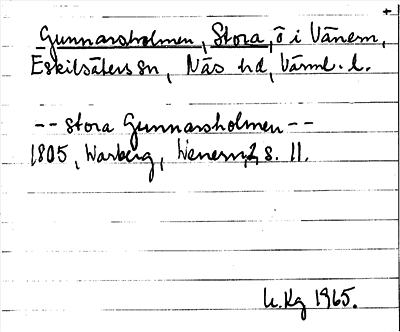 +
Gunnarsholmen, Stora, ö i Vänern,
Eskilsäters sn, Näs hd, Värml. l.
-- Stora Gunnarsholmen --
1805, Warberg, Wenern, 2, s. 11.
U.Kg 1965.